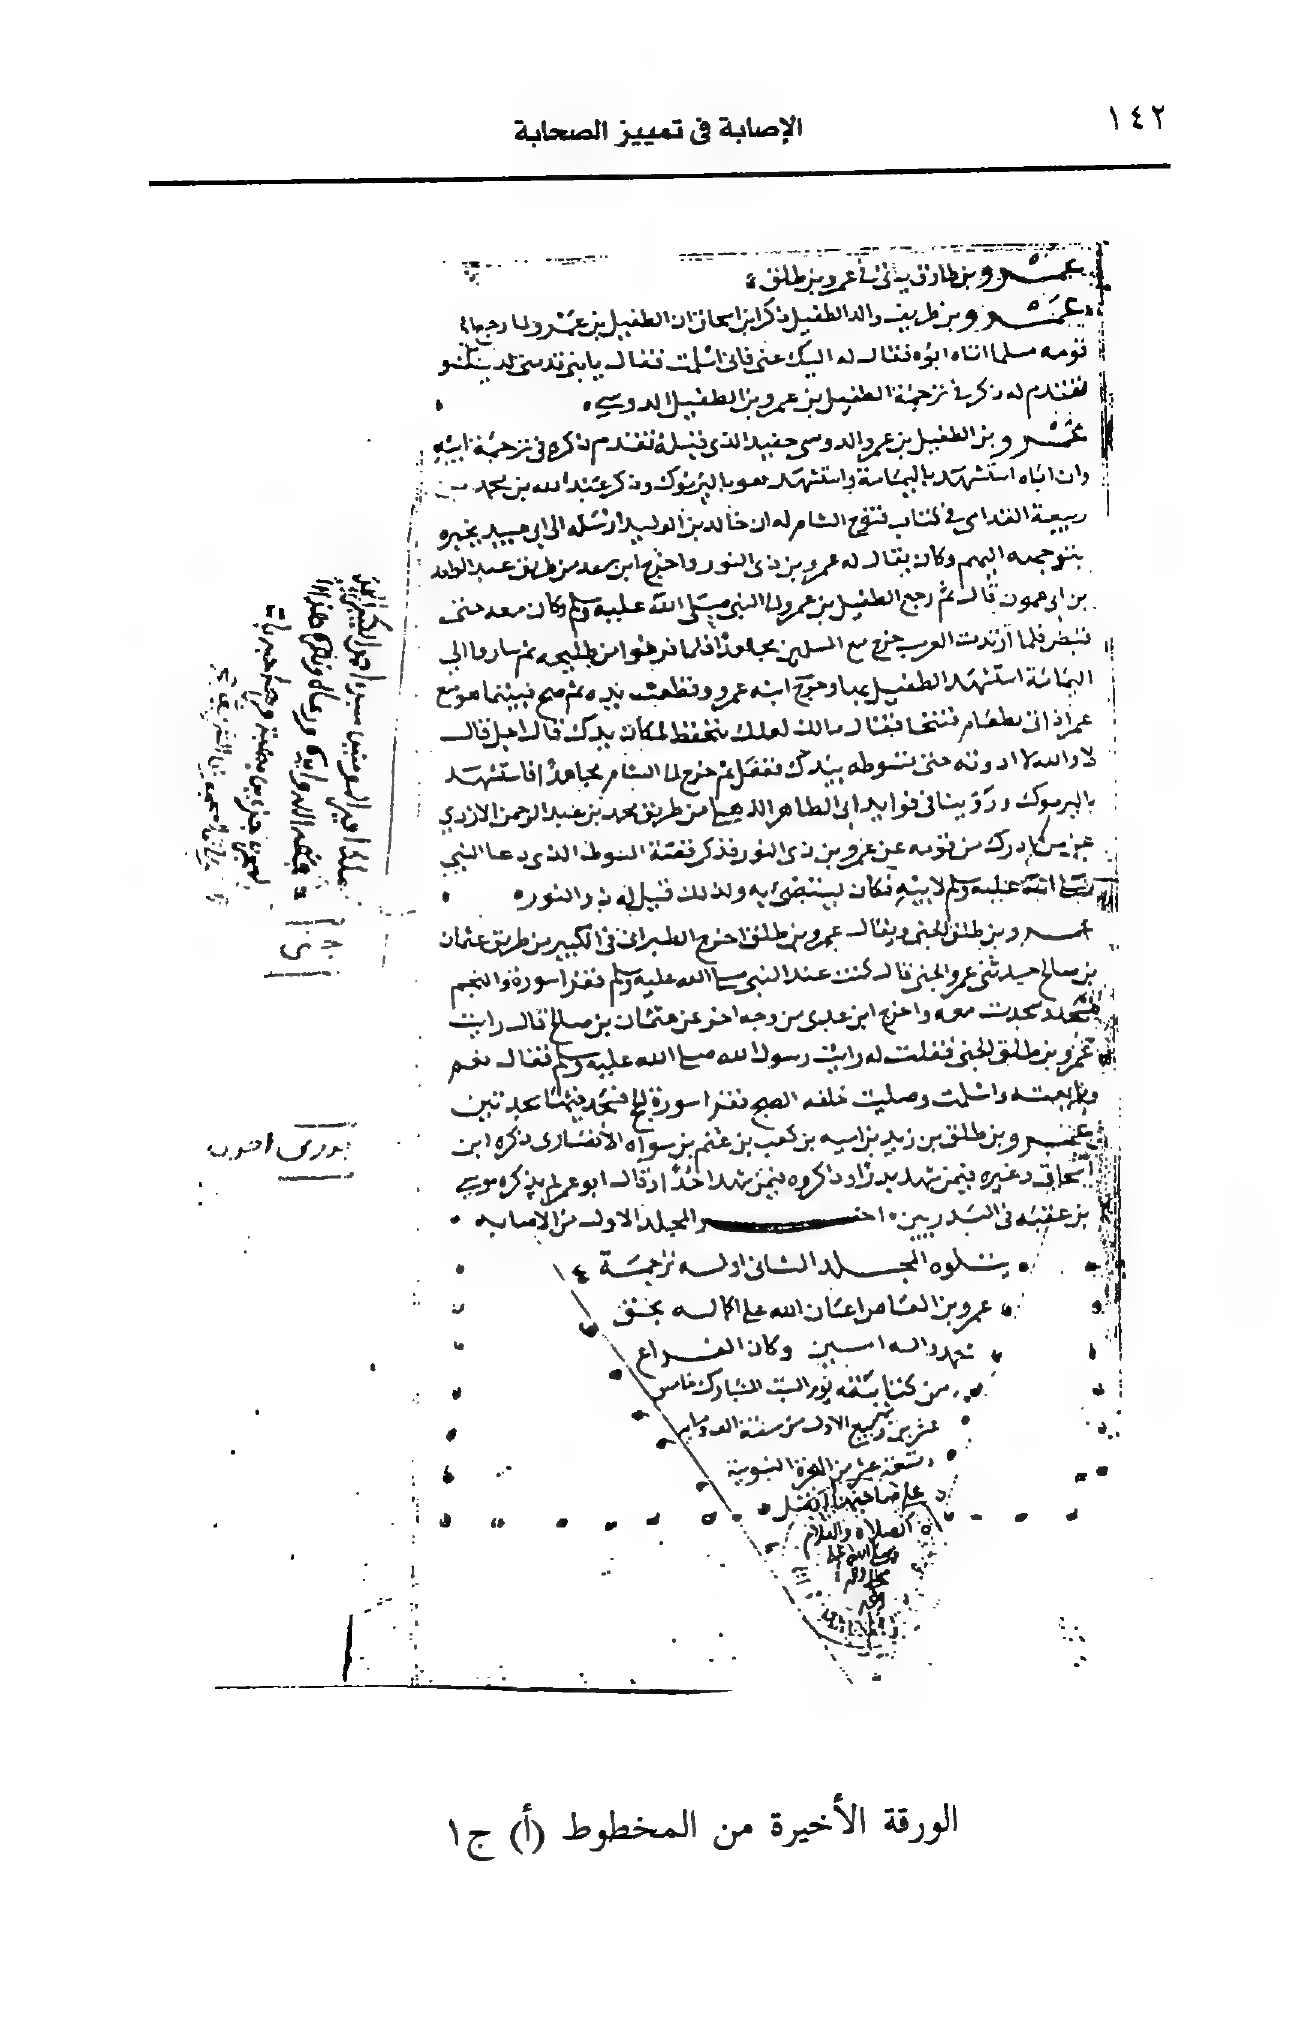 ١٤٢
الإصابة فى تمييز الصحابة
عمرو بن طارق يأتى فى عمرو بن طلق
عمرو بن طريف والد الطفيل ذكر ابن اسحاق ان الطفيل بن عمرو لما رجع الى
قومه مسلما اتاه ابوه فقال له اليك عنى فانى اسلمت فقال يا بنى
فتقدم له ذكر فى ترجمة الطفيل بن عمرو بن الطفيل الدوسى
عمرو بن الطفيل بن عمرو الدوسى حفيد الذى قبله تقدم ذكره فى ترجمة ابيه
وان اباه استشهد باليمامة واستشهد هو باليرموك وذكر عبد الله بن محمد بن
ربيعة القدامى فى كتاب فتوح الشام له ان خالد بن الوليد ارسله الى ابى عبيدة يخبره
بتوجهه اليهم وكان يقال له عمرو بن ذى النور واخرج ابن سعد من طريق عبد الواحد
بن ابى عون قال ثم رجع الطفيل بن عمرو الى النبى صلى الله عليه وسلم وكان معه حتى
قبض فلما ارتدت العرب خرج مع المسلمين مجاهدا فلما فرغوا من طليحه ثم ساروا الى
اليمامة استشهد الطفيل بها وخرج ابنه عمرو وقطعت يده ثم صح فبينما هو مع
عمر اذ اتى بطعام فتنحا فقال مالك لعلك تتحفظ لمكان يدك قال اجل قال
لا والله لا اذوقه حتى تسوطه بيدك ففعل ثم خرج الى الشام مجاهدا فاستشهد
باليرموك وروينا فى فوايد ابى الطاهر الذهلى من طريق محمد بن عبد الرحمن الازدى
عن من ادرك من قومه عن عمرو بن ذى النور فذكر قصة السوط الذى دعا النبى
صلى الله عليه وسلم لابيه فكان يستضئ به ولذلك قيل له ذو النور
عمرو بن طلق الجنى ويقال عمرو بن طلق اخرج الطبرانى فى الكبير من طريق عثمان
بن صالح حدثنى عمرو الجنى قال كنت عند النبى صلى الله عليه وسلم فقرا سورة والنجم
فسجد وسجدت معه واخرج ابن عدى من وجه اخر عن عثمان بن صالح قال رايت
عمرو بن طلق الجنى فقلت له رايت رسول الله صلى الله عليه وسلم فقال نعم
وبايعته واسلمت وصليت خلفه الصبح فقرا سورة الحج فسجد فيها سجدتين
عمرو بن طلق بن زيد بن اميه بن كعب بن غنم بن سواد الأنصارى ذكره ابن
اسحاق وغيره فيمن شهد بدرا وذكروه فيمن شهد احدا وقال ابو عمر لم يذكره موسى
بن عقبه فى البدريين اخر المجلد الاول من الاصابه
يتلوه المجلد الثانى اوله ترجمة
عمرو بن العاص اعان الله على اكماله بحق
محمد واله امين وكان الفراغ
من كتابته يوم السبت المبارك خامس
عشرين ربيع الاول من سنة
من الهجرة النبوية
على صاحبها افضل
الصلاة والسلام
جنى
بدرى
الورقة الأخيرة من المخطوط (أ) ج١